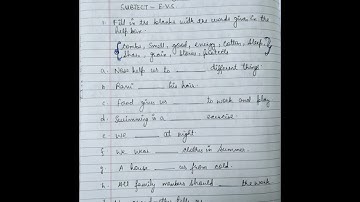 SUBJECT - E.V.S
Fill in the blanks with the words given in the
help box.
combs, smell, good, energy, cotton, sleep,
share, grain, stores, protects
a. Nose help us to ___ different things
b. Ravi ___ his hair.
c. Food gives us ___ to work and play
d. Swimming is a ___ exercise.
e. We ___ at night
f. We wear ___ clothes in summer.
g. A house ___ us from cold.
h. All family members should ___ the work